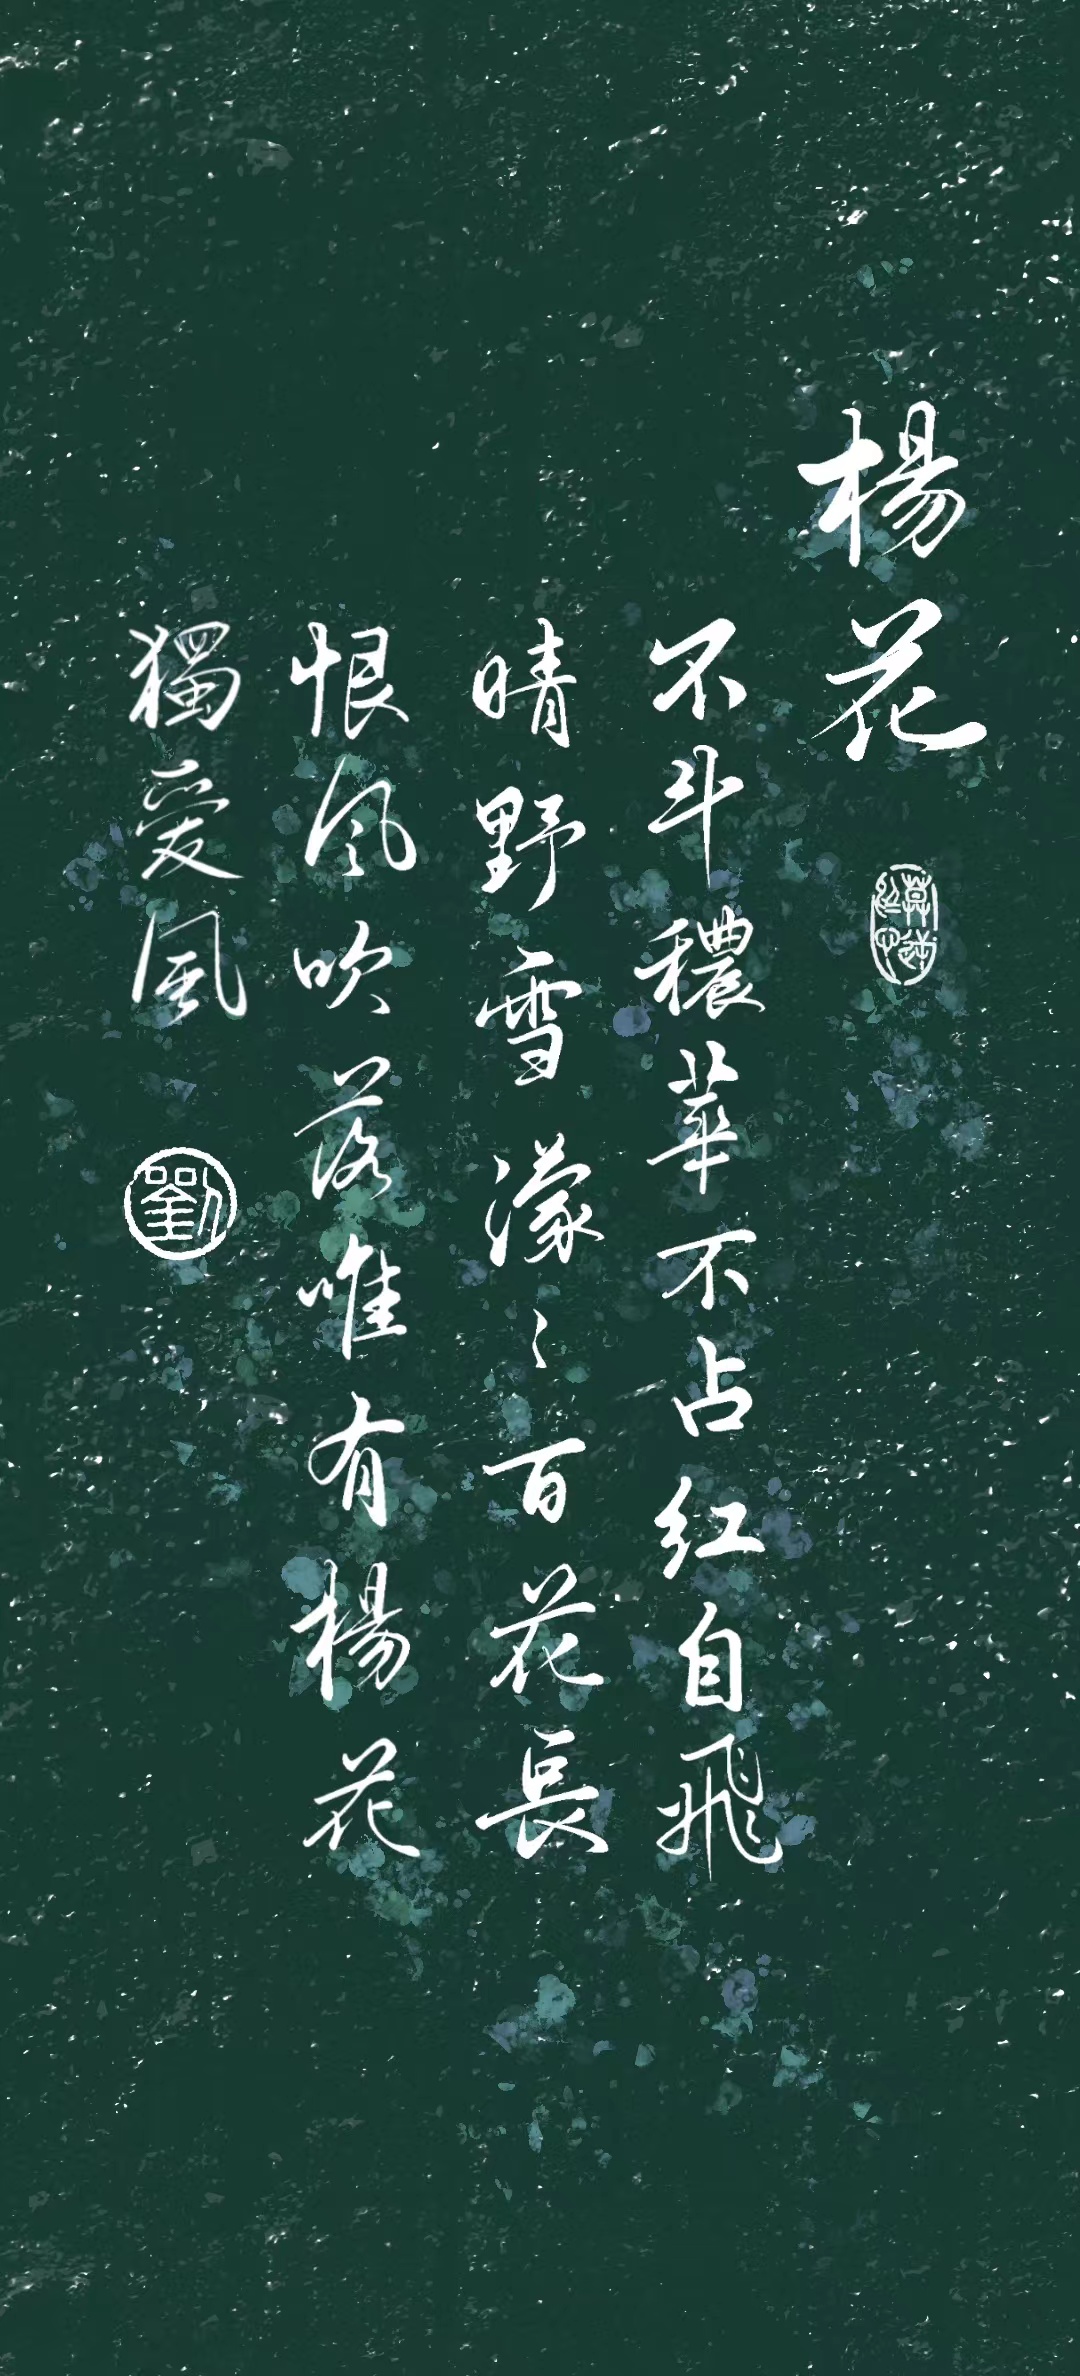 楊花
不斗穠華不占红自飛
晴野雪濛〻百花長
恨风吹落唯有楊花
獨爱風
劉